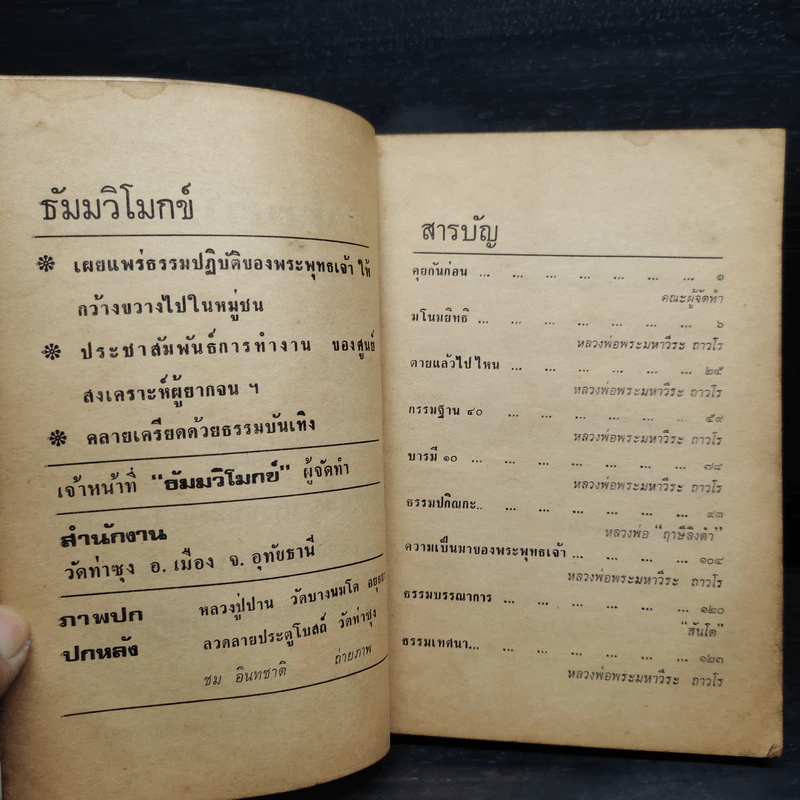 ธัมมวิโมกข์
❊ เผยแพร่ธรรมปฏิบัติของพระพุทธเจ้า ให้
กว้างขวางไปในหมู่ชน
❊ ประชาสัมพันธ์การทำงาน ของศูนย์
สงเคราะห์ผู้ยากจน ฯ
❊ คลายเครียดด้วยธรรมบันเทิง
เจ้าหน้าที่ "ธัมมวิโมกข์" ผู้จัดทำ
สำนักงาน
วัดท่าซุง อ. เมือง จ. อุทัยธานี
ภาพปก หลวงปู่ปาน วัดบางนมโค
ปกหลัง ลวดลายประตูโบสถ์ วัดท่าซุง
ชม อินทชาติ ถ่ายภาพ
สารบัญ
คุยกันก่อน ... ... ... ... ... ... ... ๑
คณะผู้จัดทำ
มโนมยิทธิ ... ... ... ... ... ... ... ๖
หลวงพ่อพระมหาวีระ ถาวโร
ตายแล้วไปไหน ... ... ... ... ... ๒๕
หลวงพ่อพระมหาวีระ ถาวโร
กรรมฐาน ๔๐ ... ... ... ... ... ... ๕๙
หลวงพ่อพระมหาวีระ ถาวโร
บารมี ๑๐ ... ... ... ... ... ... ... ๗๘
หลวงพ่อพระมหาวีระ ถาวโร
ธรรมปกิณกะ.. ... ... ... ... ... ... ๙๓
หลวงพ่อ "ฤาษีลิงดำ"
ความเป็นมาของพระพุทธเจ้า ... ... ... ... ๑๐๔
หลวงพ่อพระมหาวีระ ถาวโร
ธรรมบรรณาการ ... ... ... ... ... ... ๑๒๐
"สันโต"
ธรรมเทศนา... ... ... ... ... ... ... ๑๒๓
หลวงพ่อพระมหาวีระ ถาวโร